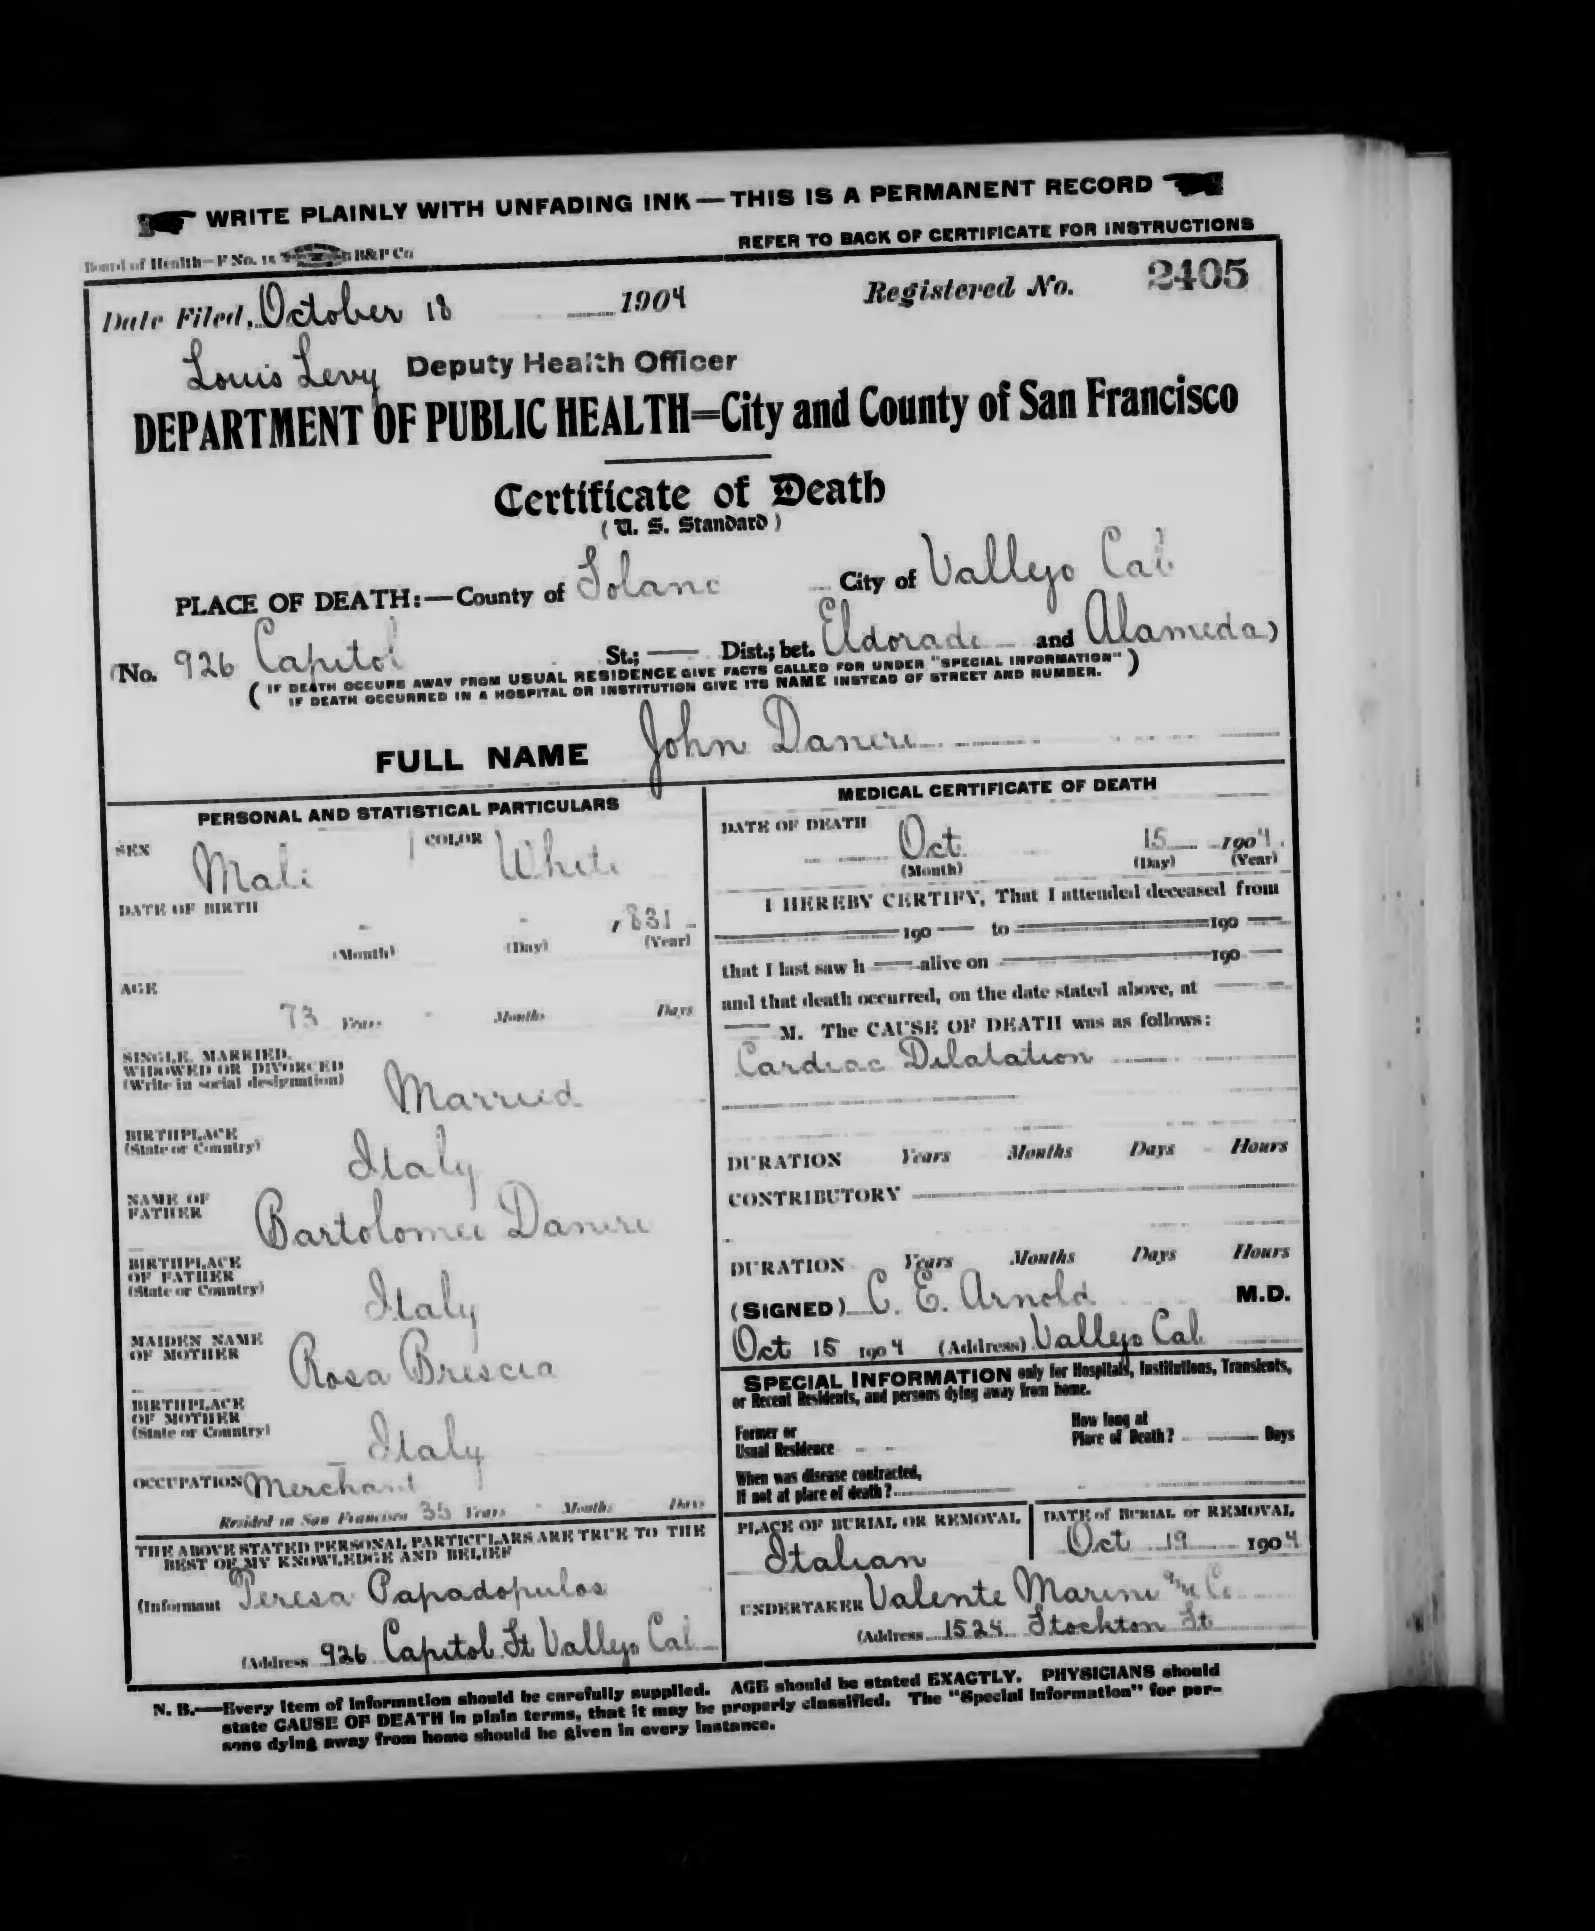 WRITE PLAINLY WITH UNFADING INK — THIS IS A PERMANENT RECORD
REFER TO BACK OF CERTIFICATE FOR INSTRUCTIONS
Board of Health—F No. 15 B&P Co
Date Filed, October 18 1904 Registered No. 2405
Louis Levy Deputy Health Officer
DEPARTMENT OF PUBLIC HEALTH=City and County of San Francisco
Certificate of Death
(U. S. Standard)
PLACE OF DEATH:—County of Solano City of Vallejo Cal
(No. 926 Capitol St.; — Dist.; bet. Eldorado and Alameda)
( IF DEATH OCCURS AWAY FROM USUAL RESIDENCE GIVE FACTS CALLED FOR UNDER "SPECIAL INFORMATION" )
IF DEATH OCCURRED IN A HOSPITAL OR INSTITUTION GIVE ITS NAME INSTEAD OF STREET AND NUMBER.
FULL NAME John Daneri
PERSONAL AND STATISTICAL PARTICULARS
SEX Male COLOR White
DATE OF BIRTH
- - 1831
(Month) (Day) (Year)
AGE
73 Years - Months Days
SINGLE, MARRIED,
WIDOWED OR DIVORCED
(Write in social designation) Married
BIRTHPLACE
(State or Country) Italy
NAME OF
FATHER Bartolomeo Daneri
BIRTHPLACE
OF FATHER
(State or Country) Italy
MAIDEN NAME
OF MOTHER Rosa Brescia
BIRTHPLACE
OF MOTHER
(State or Country) Italy
OCCUPATION Merchant
Resided in San Francisco 35 Years - Months Days
THE ABOVE STATED PERSONAL PARTICULARS ARE TRUE TO THE
BEST OF MY KNOWLEDGE AND BELIEF
(Informant Teresa Papadopulos
(Address 926 Capitol St Vallejo Cal
MEDICAL CERTIFICATE OF DEATH
DATE OF DEATH
Oct 15 1904
(Month) (Day) (Year)
I HEREBY CERTIFY, That I attended deceased from
190 — to 190 —
that I last saw h — alive on 190 —
and that death occurred, on the date stated above, at —
— M. The CAUSE OF DEATH was as follows:
Cardiac Dilatation
DURATION Years Months Days Hours
CONTRIBUTORY
DURATION Years Months Days Hours
(SIGNED) C. E. Arnold M.D.
Oct 15 1904 (Address) Vallejo Cal
SPECIAL INFORMATION only for Hospitals, Institutions, Transients,
or Recent Residents, and persons dying away from home.
Former or
Usual Residence
How long at
Place of Death? Days
When was disease contracted,
If not at place of death?
PLACE OF BURIAL OR REMOVAL
Italian
DATE of BURIAL or REMOVAL
Oct 19 1904
UNDERTAKER Valente Marini & Co
(Address 1524 Stockton St
N. B.—Every item of information should be carefully supplied. AGE should be stated EXACTLY. PHYSICIANS should
state CAUSE OF DEATH in plain terms, that it may be properly classified. The "Special Information" for per-
sons dying away from home should be given in every instance.